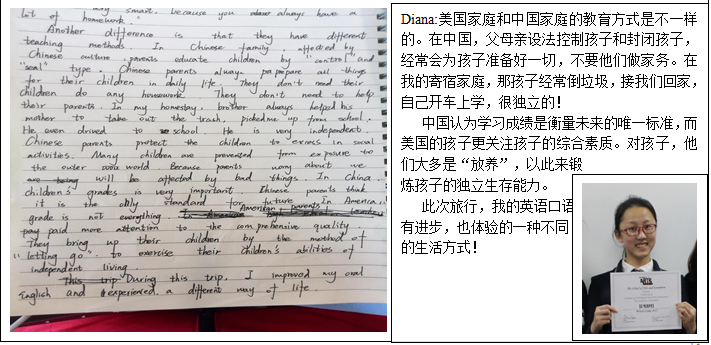 smart, because you always have a
lot of homework.
Another difference is that they have different
teaching methods. In Chinese family, affected by
Chinese culture, parents educate children by "control and
"seal" type. Chinese parents always prepare all things
for their children in daily life. They don't need their
children do any housework. They don't need to help
their parents. In my homestay, brother always helped his
mother to take out the trash, picked me up from school.
He even drived to school. He is very independent.
Chinese parents protect the children to excess in social
activities. Many children are prevented from exposure to
the outer world because parents worry about we
will be affected by bad things. In China,
children's grades is very important. Chinese parents think
it is the only standard for future. In America,
grade is not everything. American parents
pay paid more attention to the comprehensive quality.
They bring up their children by the method of
"letting go" to exercise their children's abilities of
independent living.
This trip During this trip, I improved my oral
English and experienced a different way of life.
Diana:美国家庭和中国家庭的教育方式是不一样
的。在中国，父母亲设法控制孩子和封闭孩子，
经常会为孩子准备好一切，不要他们做家务。在
我的寄宿家庭，那孩子经常倒垃圾，接我们回家，
自己开车上学，很独立的！
中国认为学习成绩是衡量未来的唯一标准，而
美国的孩子更关注孩子的综合素质。对孩子，他
们大多是“放养”，以此来锻
炼孩子的独立生存能力。
此次旅行，我的英语口语
有进步，也体验的一种不同
的生活方式！